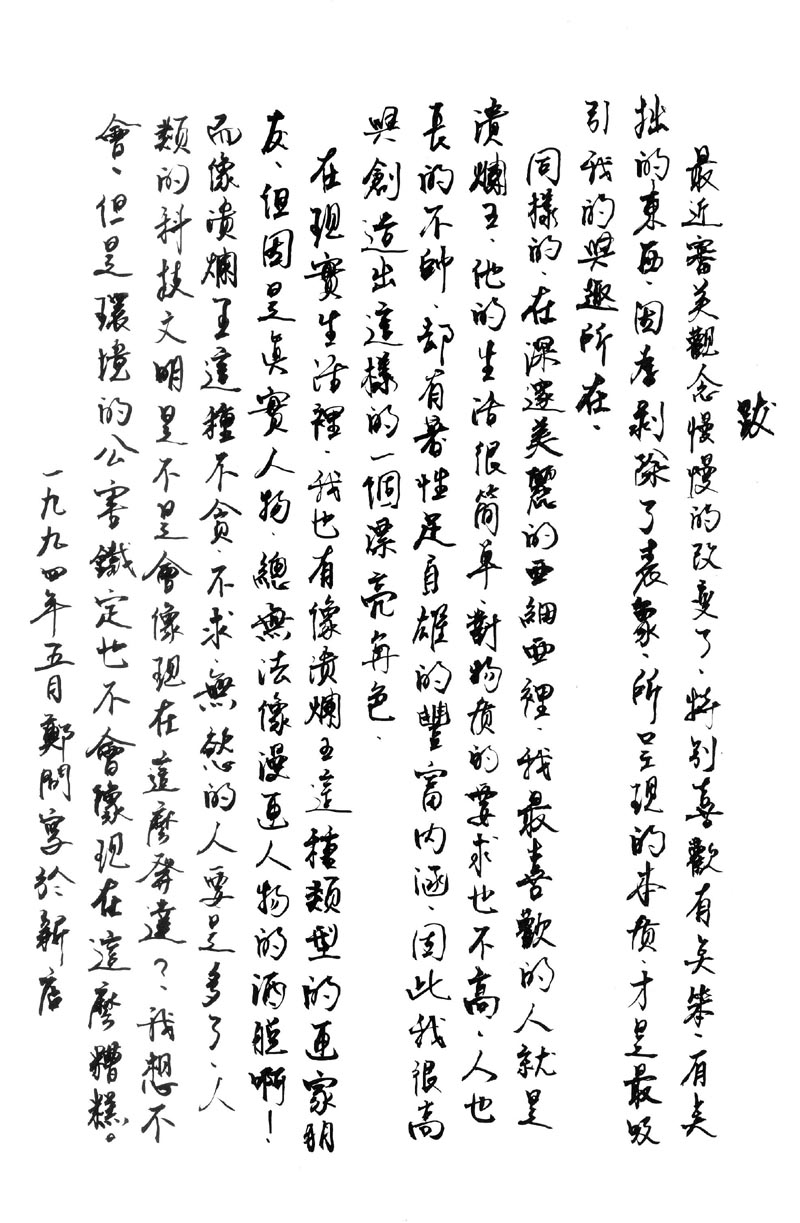 跋
最近審美觀念慢慢的改變了、特別喜歡有点笨、有点
拙的東西、因為剥除了表象、所呈現的本質、才是最吸
引我的興趣所在、
同樣的、在深邃美麗的亞細亞裡、我最喜歡的人就是
潰爛王、他的生活很簡單、對物質的要求也不高、人也
長的不帥、却有著性足自雄的豐富内涵、因此我很高
興創造出這樣的一個漂亮角色、
在現實生活裡、我也有像潰爛王這種類型的画家朋
友、但因是真實人物、總無法像漫画人物的洒脱啊！
而像潰爛王這種不貪、不求、無慾的人要是多了、人
類的科技文明是不是會像現在這麼發達？、我想不
會、但是環境的公害鐵定也不會像現在這麼糟糕。
一九九四年五月鄭問寫於新店